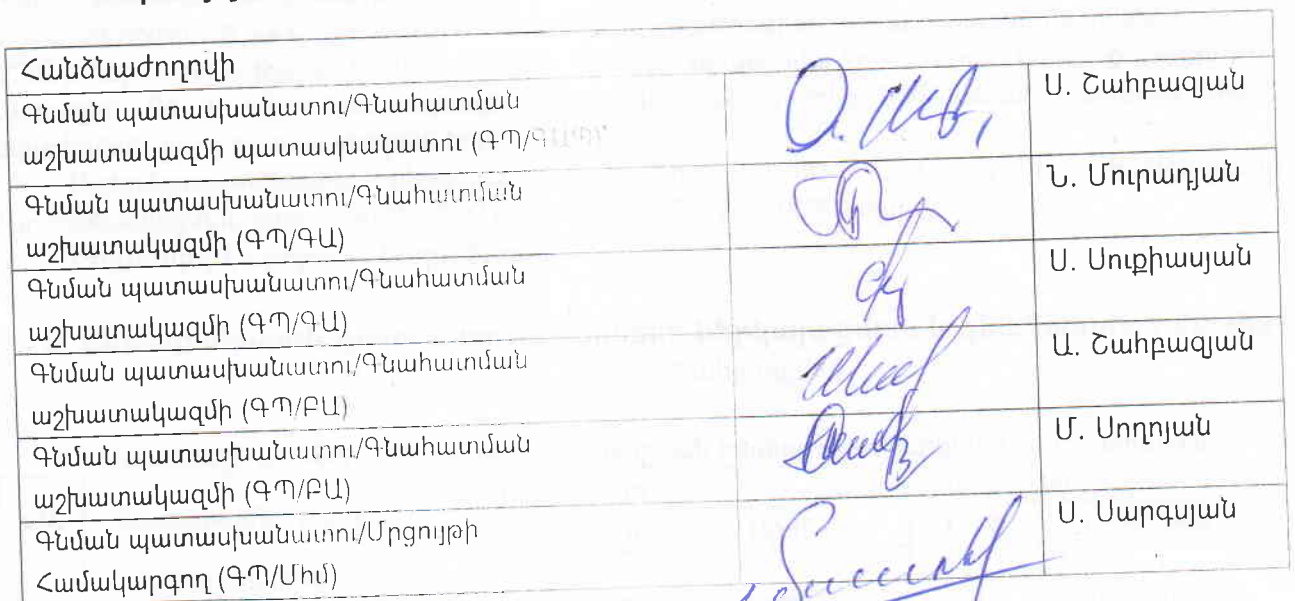 Հանձնաժողովի
Գնման պատասխանատու/Գնահատման
աշխատակազմի պատասխանատու (ԳՊ/Գ
Ս. Շահբազյան
Գնման պատասխանատու/Գնահատման
աշխատակազմի (ԳՊ/ԳԱ)
Ն. Մուրադյան
Գնման պատասխանատու/Գնահատման
աշխատակազմի (ԳՊ/ԳԱ)
Ս. Սուքիասյան
Գնման պատասխանատու/Գնահատման
աշխատակազմի (ԳՊ/ԲԱ)
Ա. Շահբազյան
Գնման պատասխանատու/Գնահատման
աշխատակազմի (ԳՊ/ԲԱ)
Մ. Սողոյան
Գնման պատասխանատու/Մրցույթի
Համակարգող (ԳՊ/Մհմ)
Ս. Սարգսյան